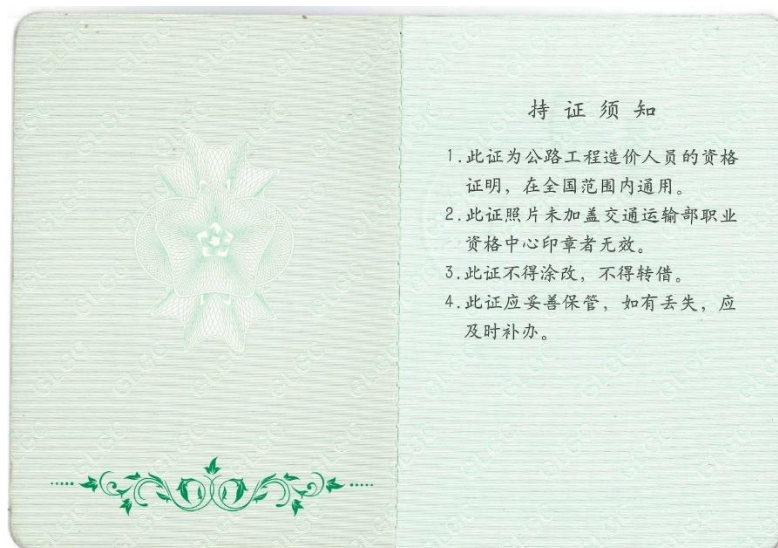 持证须知
1.此证为公路工程造价人员的资格
证明，在全国范围内通用。
2.此证照片未加盖交通运输部职业
资格中心印章者无效。
3.此证不得涂改，不得转借。
4.此证应妥善保管，如有丢失，应
及时补办。
GLGC